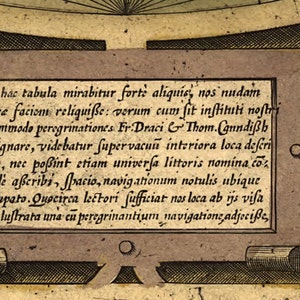 hac tabula mirabitur fortè aliquis, nos nudam
faciem reliquiße: verum cum sit instituti nostri
peregrinationes Fr. Draci & Thom. Caundißh
gnare, videbatur supervacuū interiora loca descri
, nec poßint etiam universa littoris nomina cō-
ascribi, spacio, navigationum notulis ubique
upato. Quocirca lectori sufficiat nos loca ab ijs visa
lustrata una cū peregrinantium navigatione, adjeciße,